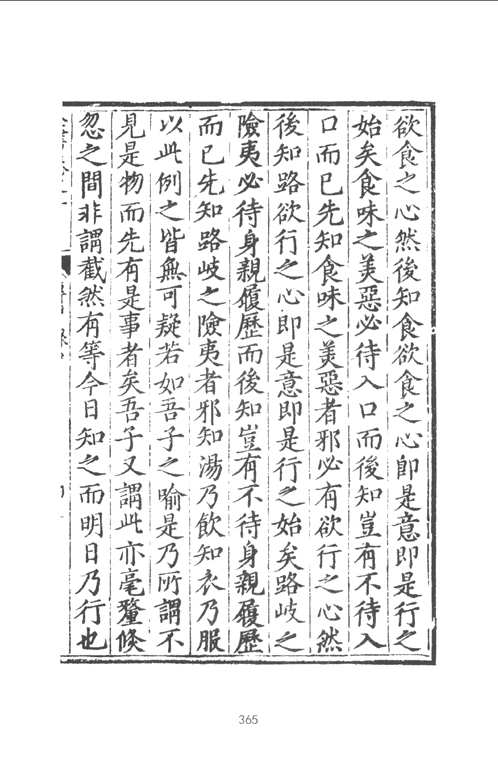 欲食之心然後知食欲食之心即是意即是行之
始矣食味之美惡必待入口而後知豈有不待入
口而已先知食味之美惡者邪必有欲行之心然
後知路欲行之心即是意即是行之始矣路岐之
險夷必待身親履歷而後知豈有不待身親履歷
而已先知路岐之險夷者邪知湯乃飲知衣乃服
以此例之皆無可疑若如吾子之喻是乃所謂不
見是物而先有是事者矣吾子又謂此亦毫釐倐
忽之間非謂截然有等今日知之而明日乃行也
365